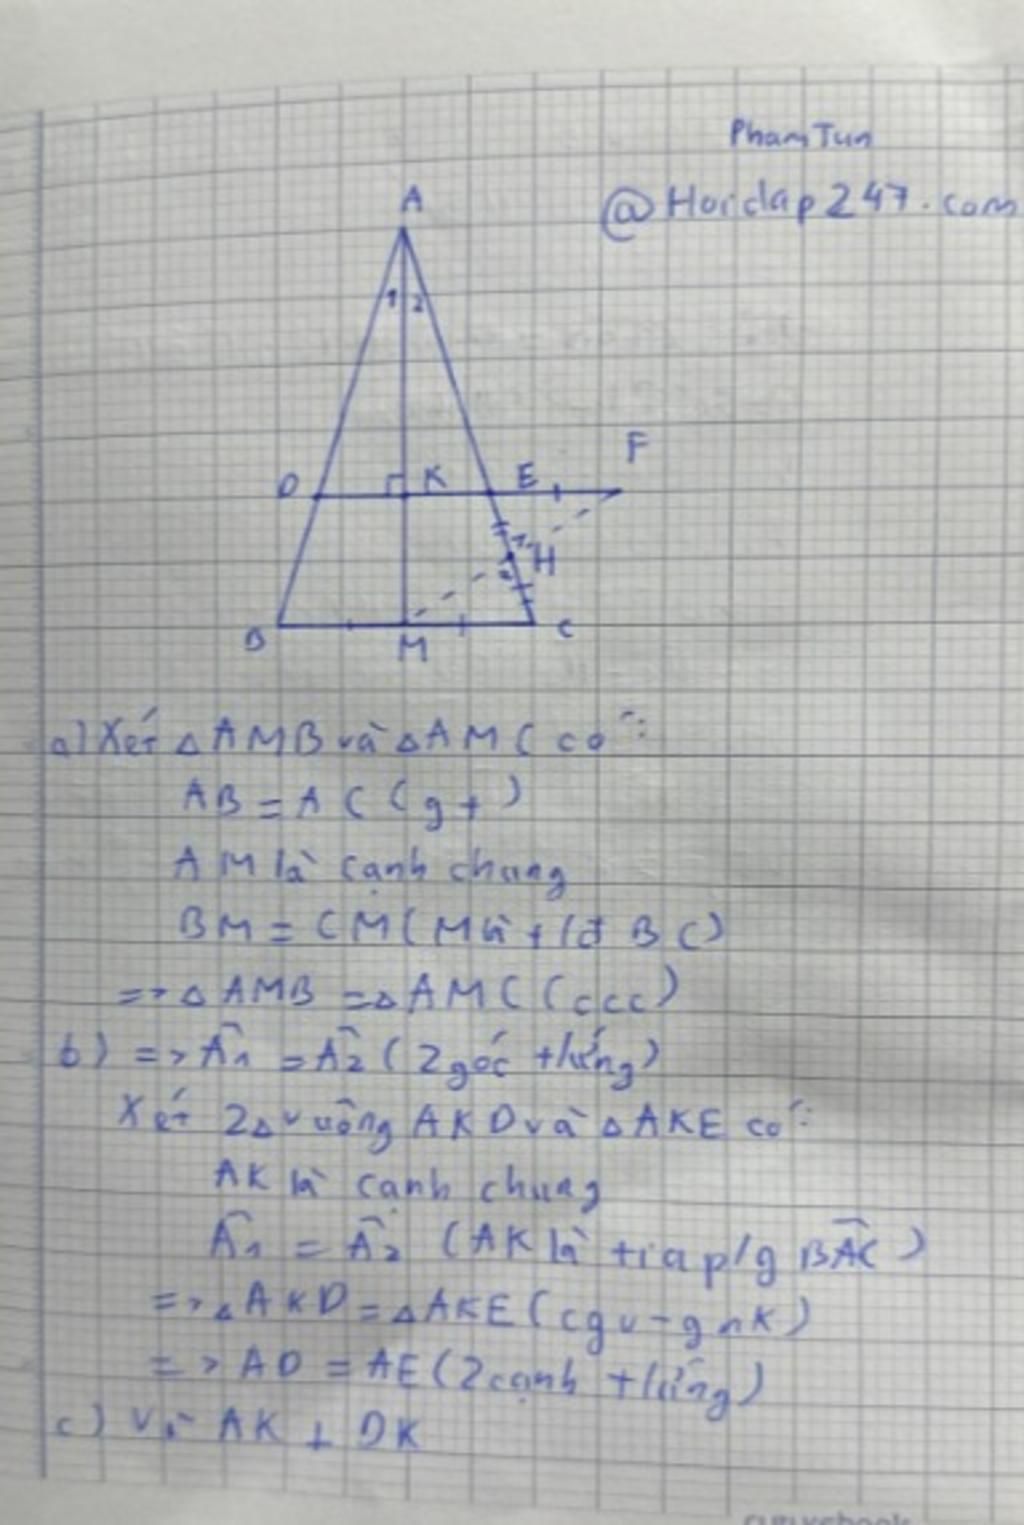 Pham Tun
@Hoidap247.com
A
1 2
D K E F
H
B M C
a) Xét △AMB và △AMC có:
AB = AC (gt)
AM là cạnh chung
BM = CM (M là t/đ BC)
=> △AMB = △AMC (ccc)
b) => Â1 = Â2 (2 góc t/ứng)
Xét 2△ vuông AKD và △AKE có:
AK là cạnh chung
Â1 = Â2 (AK là tia p/g BÂC)
=> △AKD = △AKE (cgv - gnk)
=> AD = AE (2 cạnh t/ứng)
c) Vì AK ⊥ DK